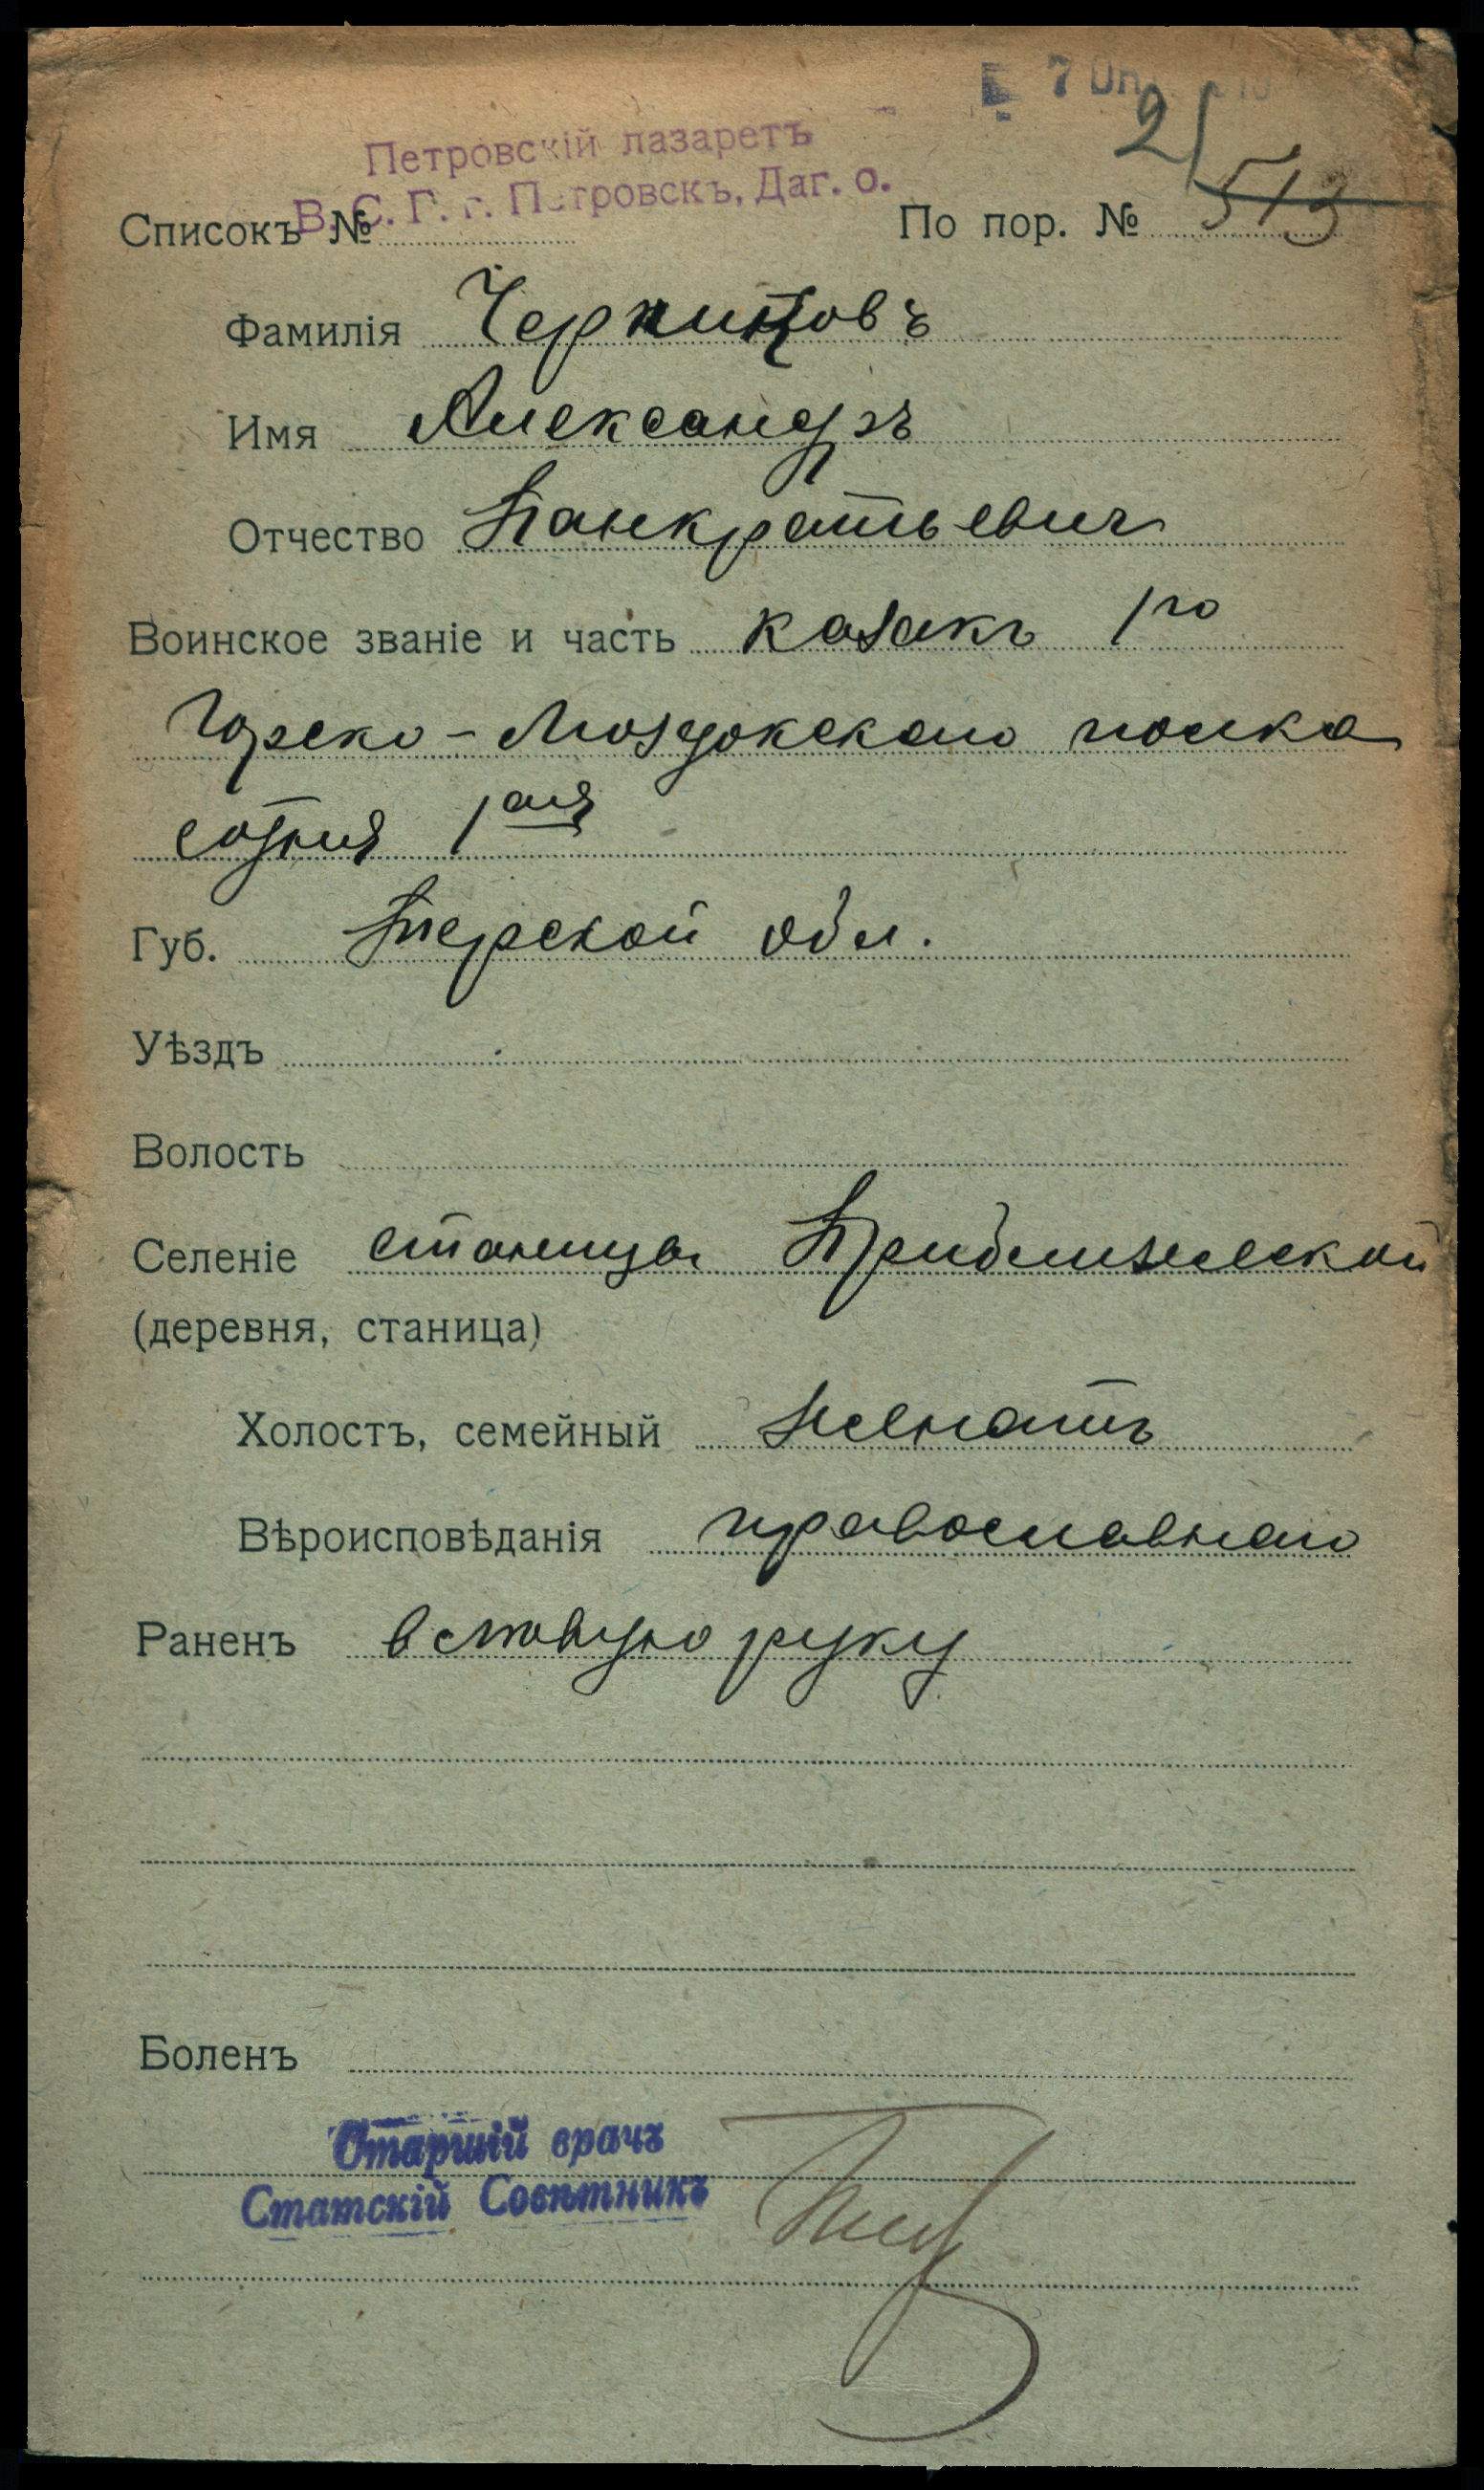 Петровскій лазаретъ
В. С. Г. г. Петровскъ, Даг. о.
Списокъ № По пор. № 513
21
Фамилія Черницовъ
Имя Александръ
Отчество Панкратьевич
Воинское званіе и часть казакъ 1го
Горско-Моздокскаго полка
сотня 1ая
Губ. Терской обл.
Уѣздъ
Волость
Селеніе станицы Приближеской
(деревня, станица)
Холостъ, семейный женатъ
Вѣроисповѣданія православнаго
Раненъ в лѣвую руку
Боленъ
Старшій врачъ
Статскій Совѣтникъ